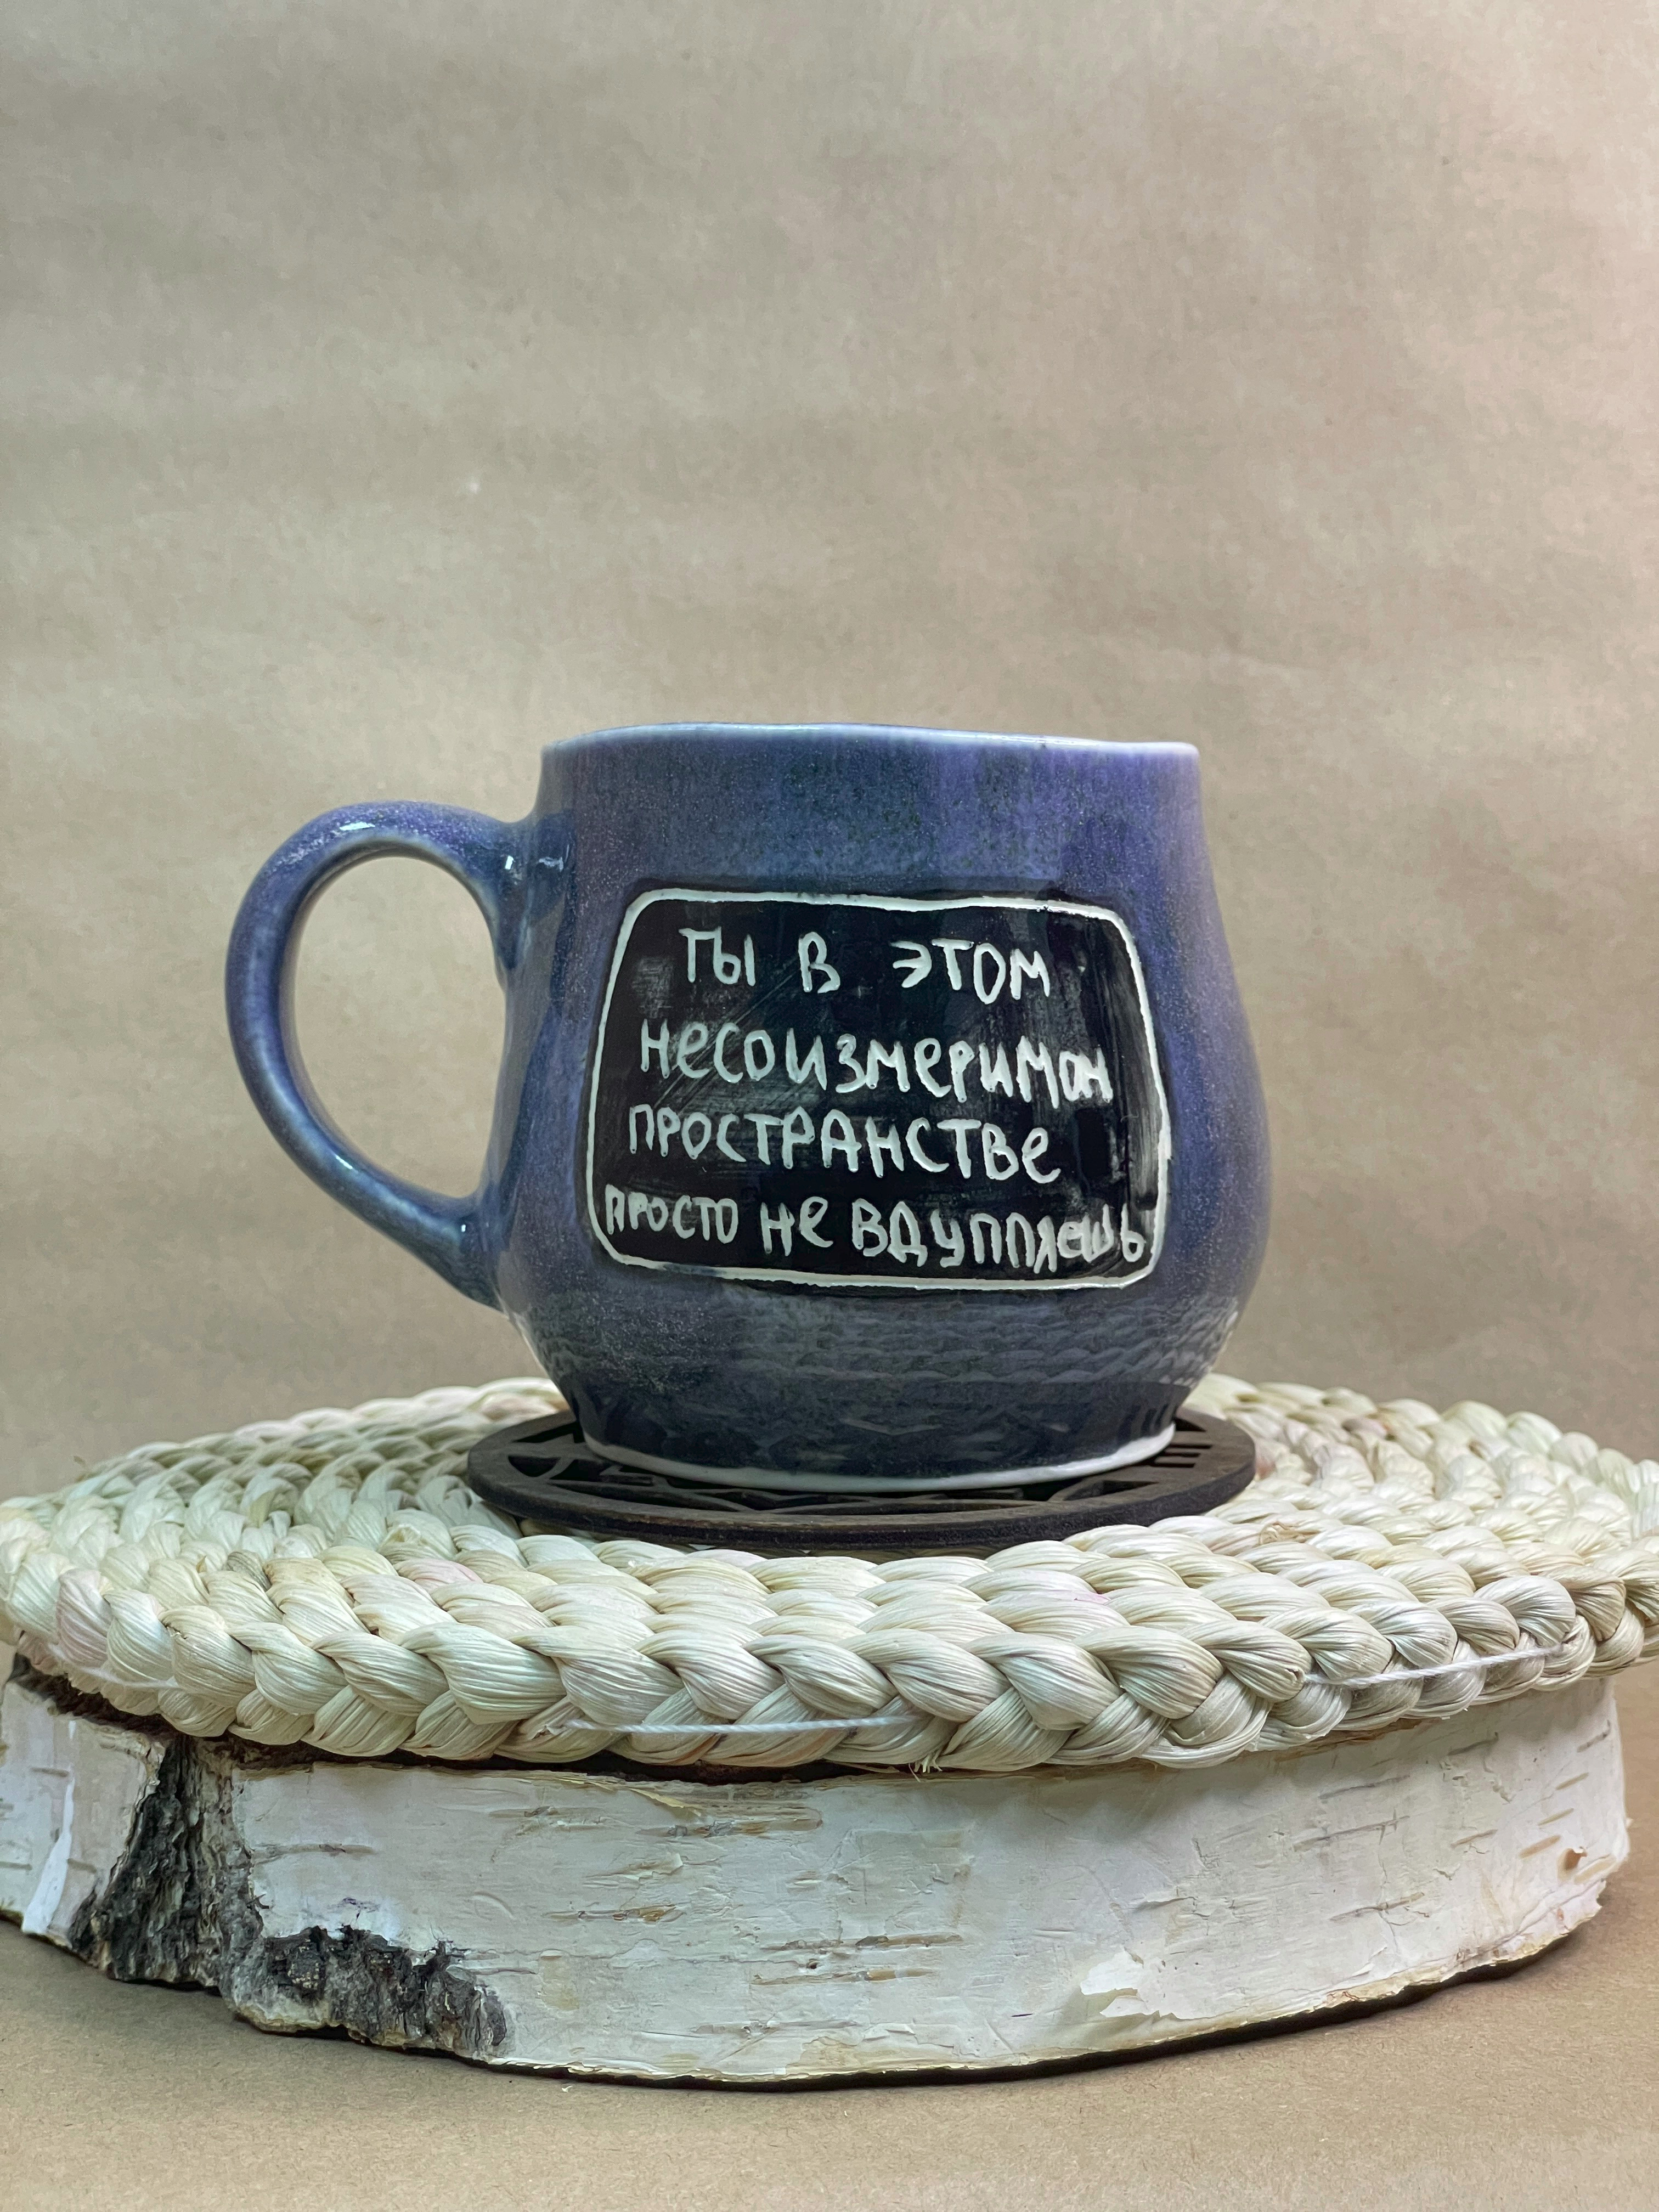 ты в этом
несоизмеримом
пространстве
просто не вдупляешь